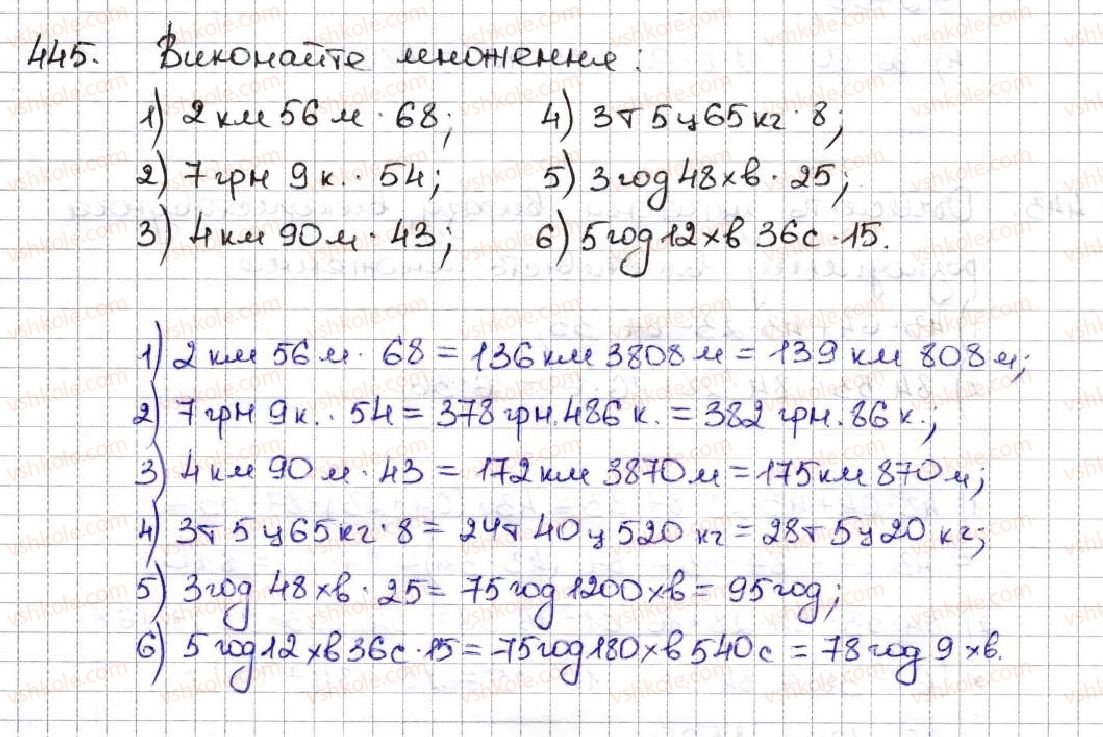 445. Виконайте множення:
1) 2 км 56 м · 68; 4) 3т 5ц 65кг · 8;
2) 7 грн 9 к. · 54; 5) 3 год 48 хв · 25;
3) 4 км 90 м · 43; 6) 5 год 12 хв 36с · 15.
1) 2 км 56 м · 68 = 136 км 3808 м = 139 км 808 м;
2) 7 грн 9 к. · 54 = 378 грн. 486 к. = 382 грн. 86 к.;
3) 4 км 90 м · 43 = 172 км 3870 м = 175 км 870 м;
4) 3т 5ц 65кг · 8 = 24т 40ц 520 кг = 28т 5ц 20 кг;
5) 3 год 48 хв · 25 = 75 год 1200 хв = 95 год;
6) 5 год 12 хв 36с · 15 = 75 год 180 хв 540с = 78 год 9 хв.